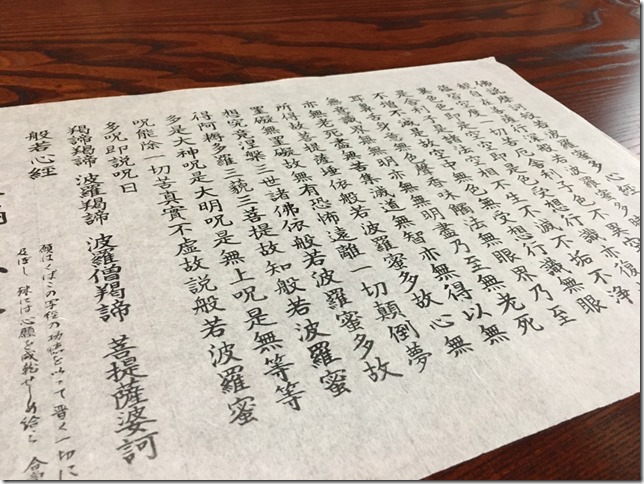 佛説摩訶般若波羅蜜多心経
観自在菩薩行深般若波羅蜜多
蘊皆空度一切苦厄舎利子色不異
異色色即是空空即是色受想行識亦復
是舎利子是諸法空相不生不滅不垢不浄
不増不減是故空中無色無受想行識無眼
耳鼻舌身意無色聲香味觸法無眼界乃至
無意識界無無明亦無無明盡乃至無老死
亦無老死盡無苦集滅道無智亦無得以無
所得故菩提薩埵依般若波羅蜜多故心無
罣礙無罣礙故無有恐怖遠離一切顛倒夢
想究竟涅槃三世諸佛依般若波羅蜜多故
得阿耨多羅三藐三菩提故知般若波羅蜜
多是大神呪是大明呪是無上呪是無等等
呪能除一切苦真實不虚故説般若波羅蜜
多呪即説呪曰
羯諦羯諦 波羅羯諦 波羅僧羯諦 菩提薩婆訶
般若心経
願はくばこの写経の功徳を以って普く一切に
及ぼし 殊には心願を成就せしめ給